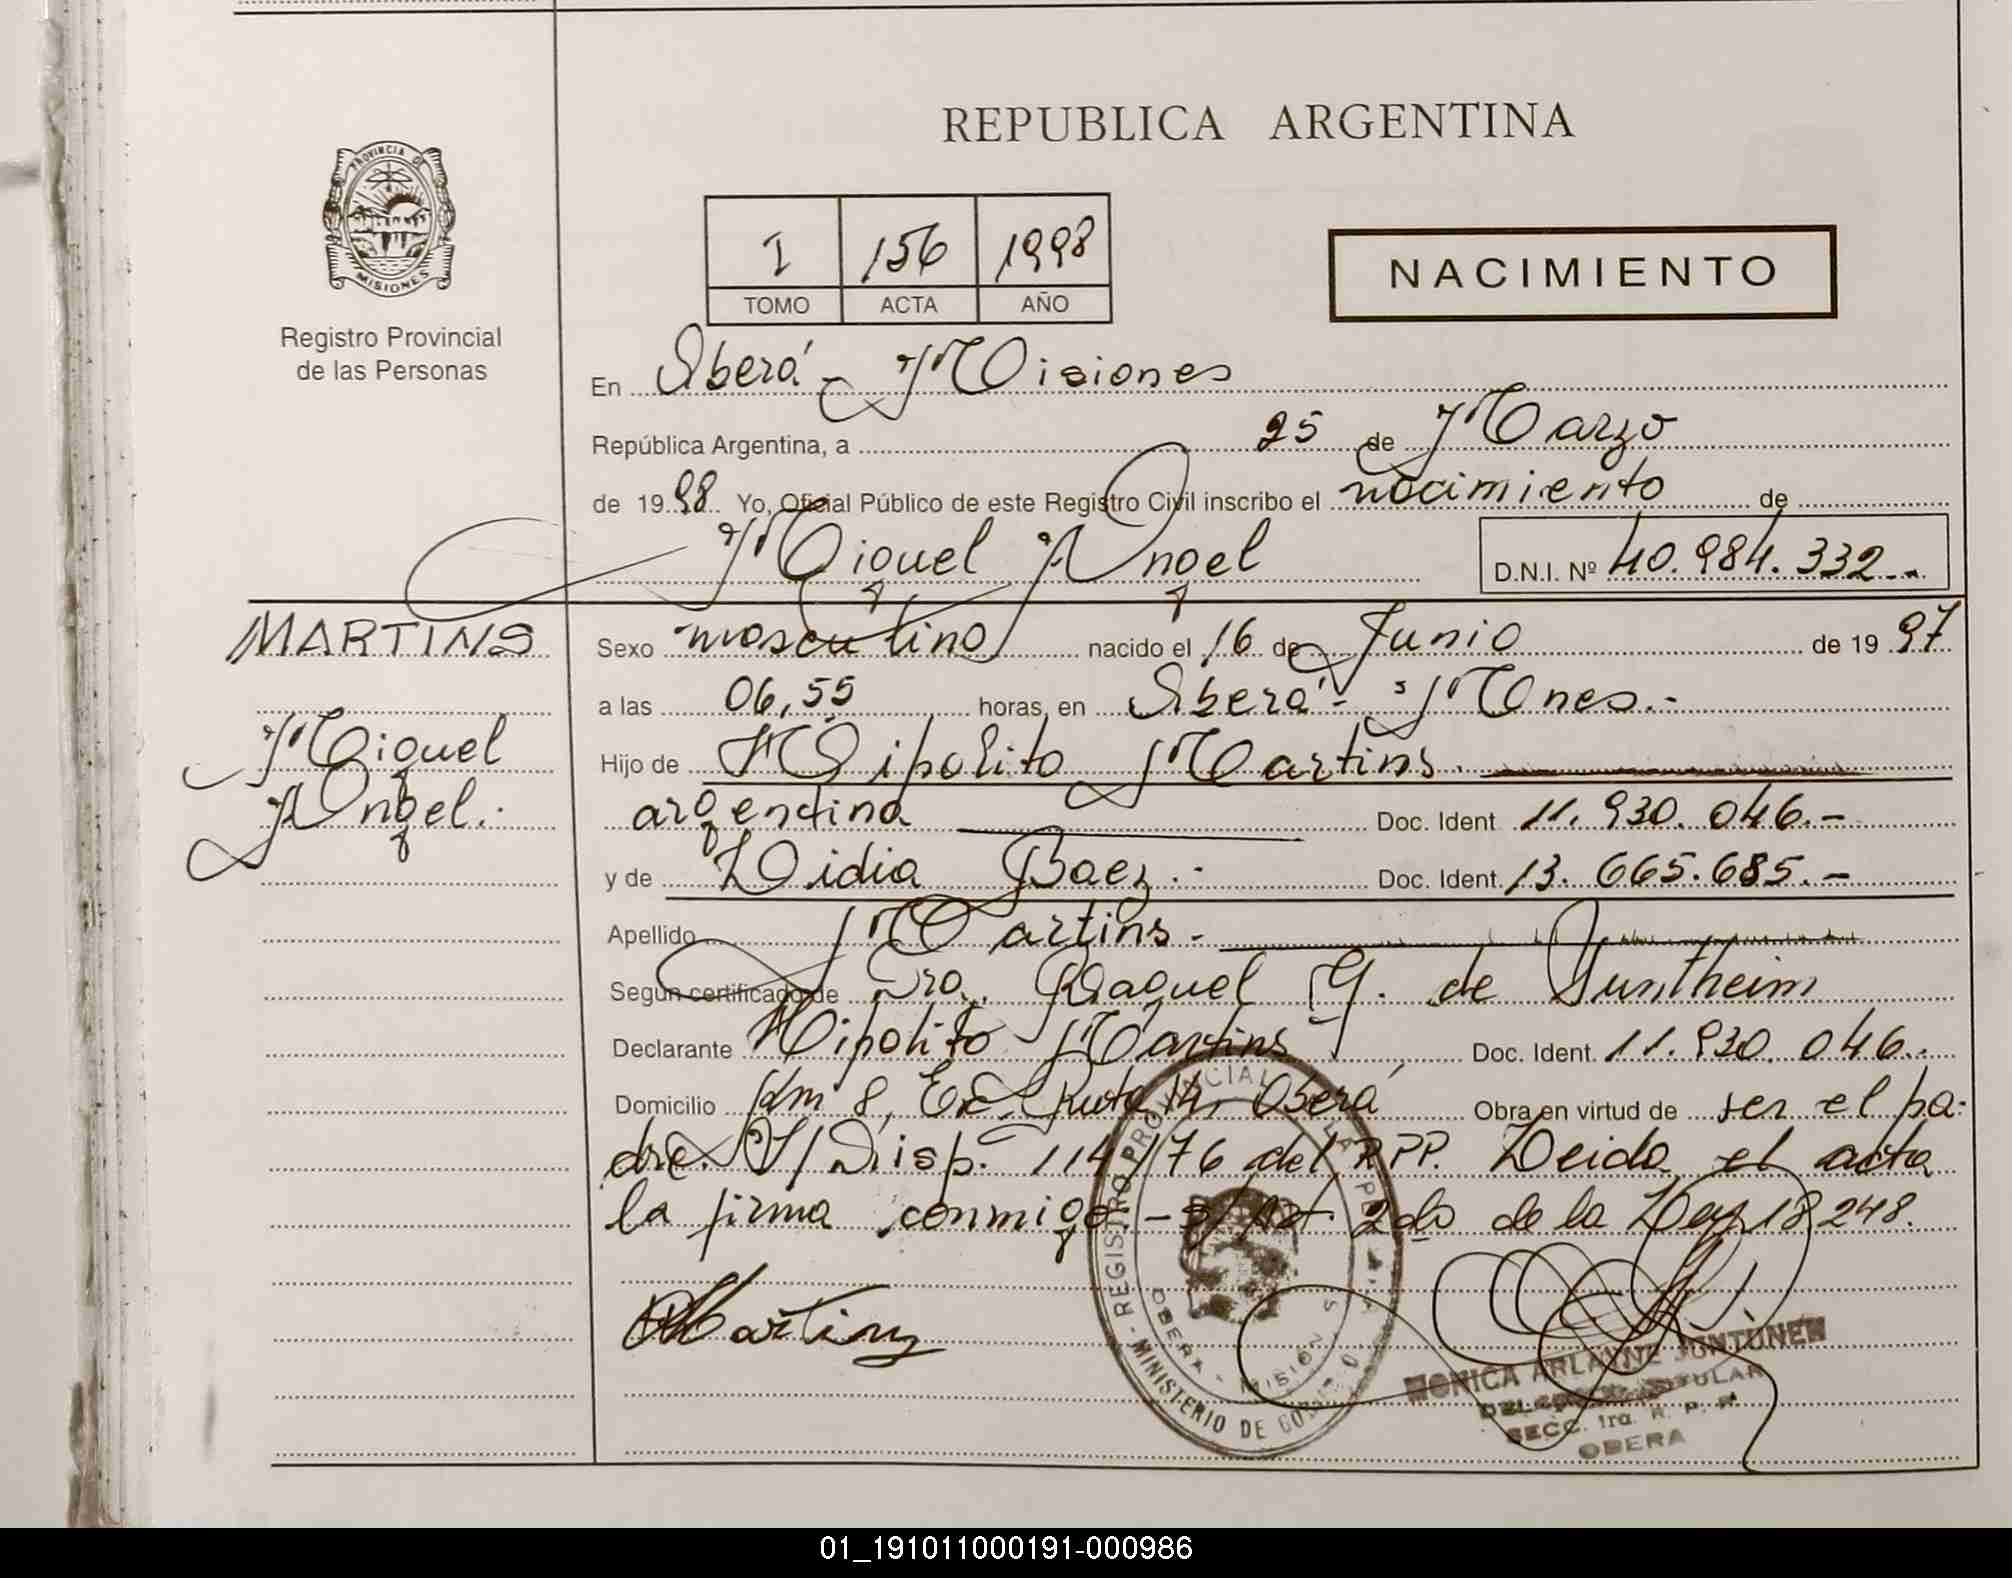 REPUBLICA ARGENTINA
PROVINCIA DE
MISIONES
Registro Provincial
de las Personas
I 156 1998
TOMO ACTA AÑO
NACIMIENTO
En Oberá - Misiones
República Argentina, a 25 de Marzo
de 1998 Yo, Oficial Público de este Registro Civil inscribo el nacimiento de
Miguel Angel D.N.I. Nº 40.984.332.-
MARTINS
Miguel
Angel.-
Sexo masculino nacido el 16 de Junio de 1997
a las 06,55 horas, en Oberá - Mnes.-
Hijo de Hipolito Martins.
argentina Doc. Ident. 11.930.046.-
y de Lidia Baez.- Doc. Ident. 13.665.685.-
Apellido Martins -
Según certificado de Dra. Raquel G. de Suntheim
Declarante Hipolito Martins Doc. Ident. 11.930.046.-
Domicilio Km 8, Ex. Ruta 14, Oberá Obra en virtud de ser el pa-
dre. S/Disp. 114/76 del RPP. Leida el acta
la firma conmigo.- s/Art. 2do de la Ley 18248.
Martins
REGISTRO PROVINCIAL DE LAS PERSONAS - MINISTERIO DE GOBIERNO
OBERA - MISIONES
MONICA ARLAYNE JUNTUNEN
DELEGADA TITULAR
SECC. 1ra. R. P. P.
OBERA
01_191011000191-000986